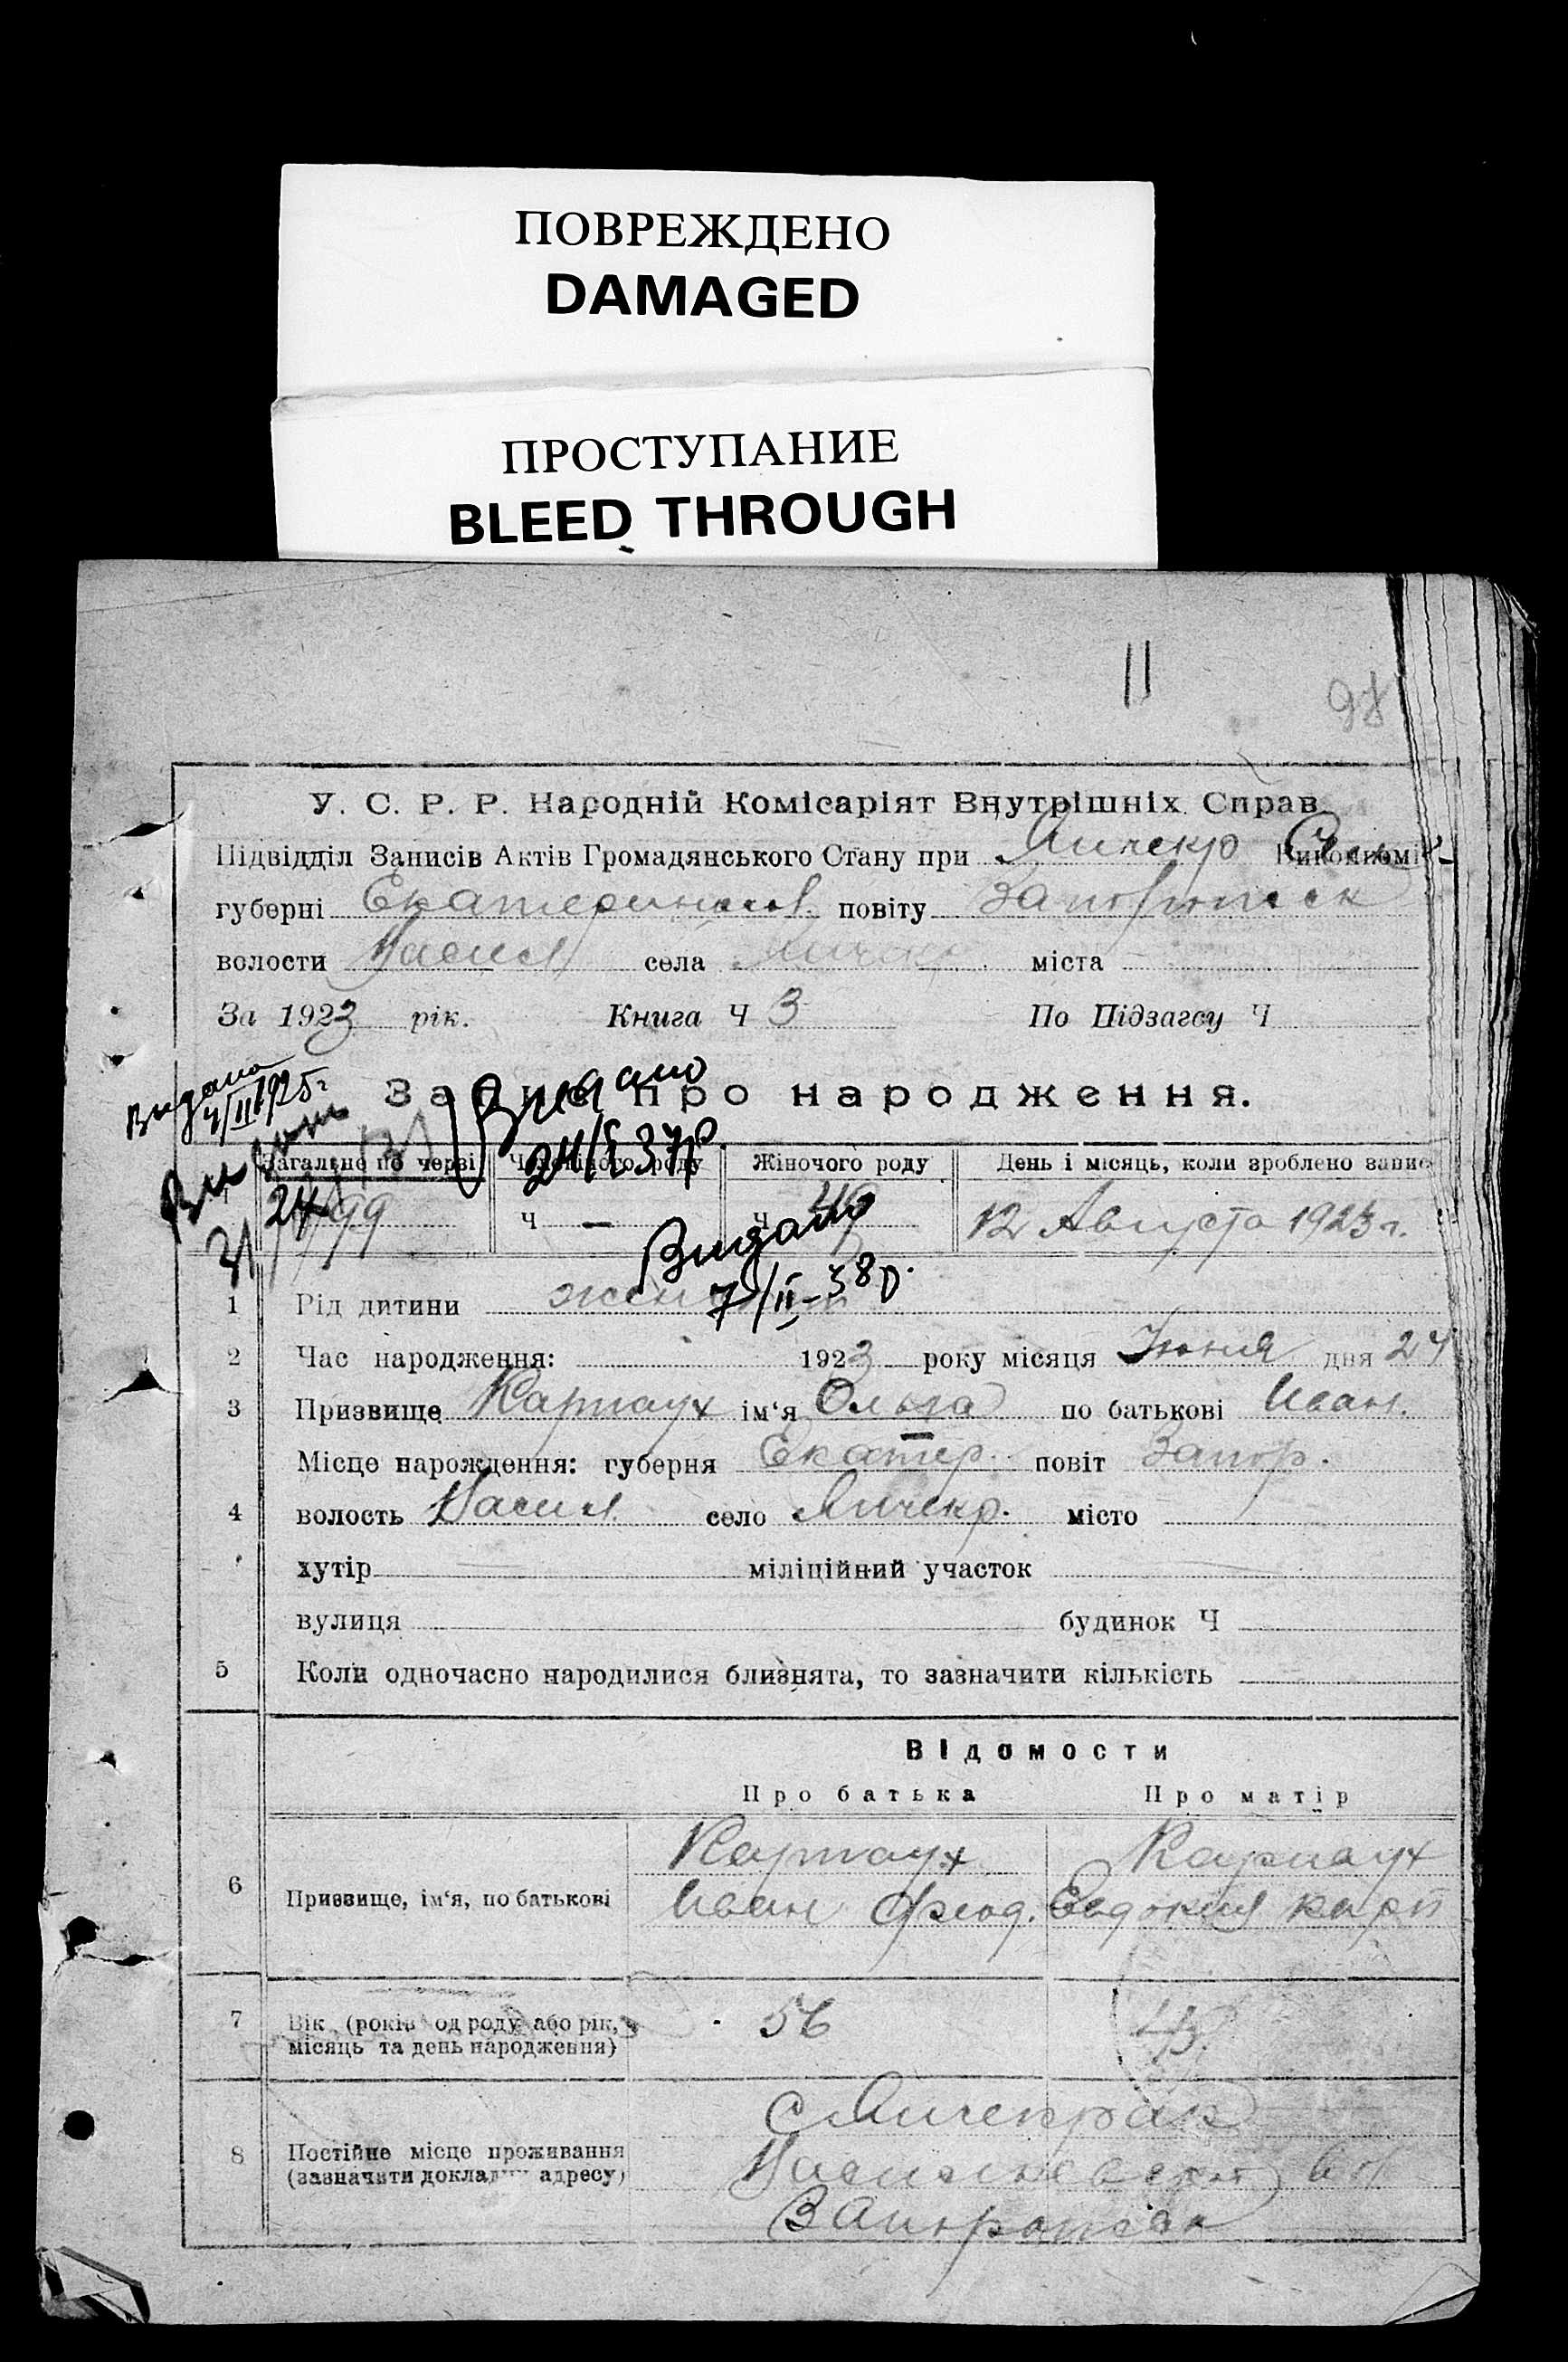 ПОВРЕЖДЕНО
DAMAGED
ПРОСТУПАНИЕ
BLEED THROUGH
11
98
У. С. Р. Р. Народній Комісаріят Внутрішніх Справ
Підвідділ Записів Актів Громадянського Стану при
губерні Екатеринослав. повіту Запорожск
волости Васил села міста
За 1923 рік. Книга Ч 3 По Підзагсу Ч
Видана
1925г
Запис про народження.
Видано
24/I 37р.
Загально по черзі Чоловічого роду Жіночого роду День і місяць, коли зроблено запис
99 Ч — Ч 12 Августа 1923 г.
Видано
7/II-38р.
1 Рід дитини
2 Час народження: 1923 року місяця Июня дня 24
3 Призвище Карнаух ім‘я Ольга по батькові Иван.
Місце нарождення: губерня Екатер. повіт Запор.
4 волость Васил. село Янчекр. місто
хутір міліційний участок
вулиця будинок Ч
5 Коли одночасно народилися близнята, то зазначити кількість
Відомости
Про батька Про матір
Карнаух Карнаух
6 Призвище, ім‘я, по батькові Иван Феод. Евдокия Карп
7 Вік (років од роду або рік, 56 43
місяць та день народження)
с Янчекрак
8 Постійне місце проживання Васильевской вол
(зазначити докладну адресу)
Запорожск